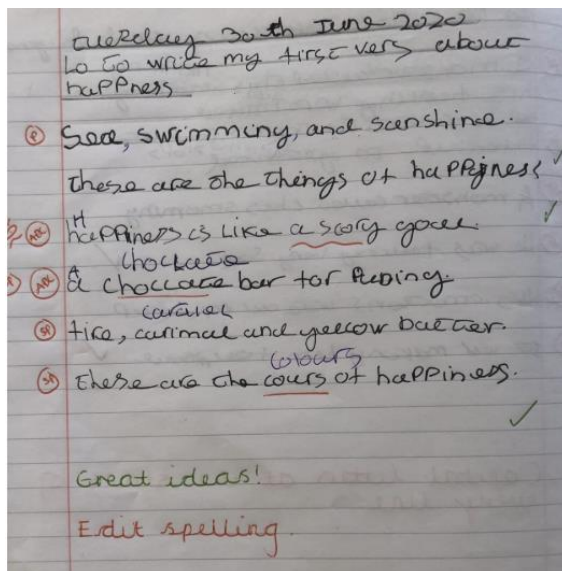 Tuesday 30th June 2020
Lo to write my first vers about
happness
P Sea, swimming, and sunshine.
These are the things of happiness
ABC H happiness is like a scory goal.
choclate
ABC A a choccate bar for puding.
caramel
SP fire, carimal and yellow butter.
colours
SP these are the cours of happiness.
Great ideas!
Edit spelling.